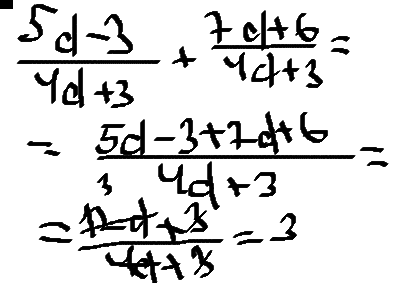 (5d-3)/(4d+3) + (7d+6)/(4d+3) =
= (5d-3+7d+6)/(4d+3) =
= (12d+3)/(4d+3) = 3